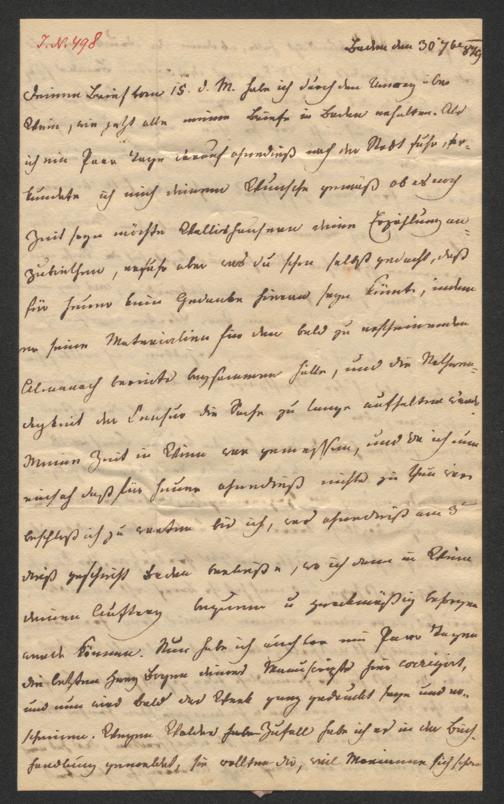 I.N. 498
Baden den 30' 7br 829
Deinen Brief vom 15. d. M. habe ich durch den Umweg über
Wien, wie jetzt alle meine Briefe in Baden erhalten. Als
ich ein Paar Tage darauf ohnedieß nach der Stadt fuhr, er-
kundete ich mich deinem Wunsche gemäß ob es noch
Zeit seyn möchte Wallishausern deine Erzählung an-
zubiethen, erfuhr aber was du schon selbst gedacht, daß
für heuer kein Gedanke hieran seyn könnte, indem
er seine Materialien für den bald zu erscheinenden
Almanach bereits beysammen hätte, und die Nothwen-
digkeit der Censur die Sache zu lange aufhalten würde.
Meine Zeit in Wien war gemessen, und da ich nun
einsah daß für heuer ohnedieß nichts zu thun war
beschloß ich zu warten bis ich, was ohnedieß am 3
dieß geschieht Baden verließe, wo ich dann in Wien
deinen Auftrag bequem u zweckmäßig besorgen
werde können. Nun habe ich auch vor ein Paar Tagen
die letzten Bogen deines Manuscripts hier corrigirt,
und nun wird bald das Werk ganz gedruckt seyn und er-
scheinen. Wegen habe ich es in der Buch-
handlung gemeldet, sie wollten die, weil Marianne sich schon